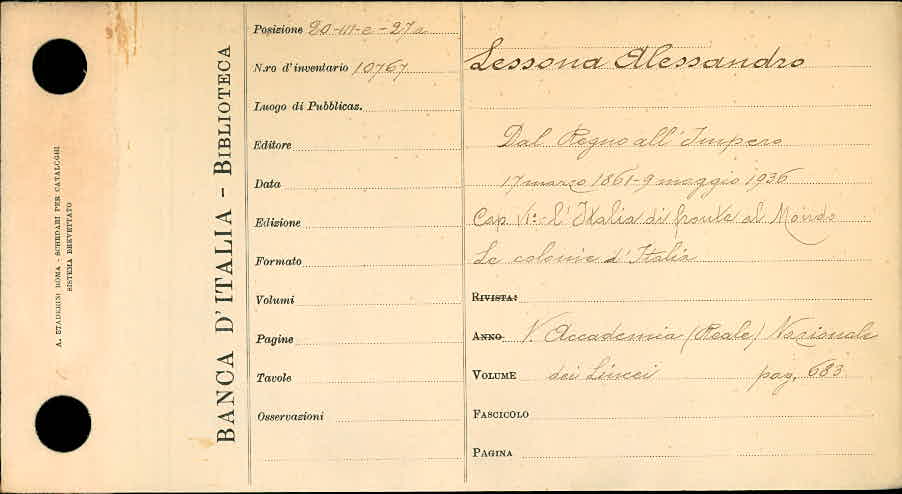 A. STADERINI ROMA - SCHEDARI PER CATALOGHI
SISTEMA BREVETTATO
BANCA D'ITALIA - BIBLIOTECA
Posizione 20-III-e-27a
N.ro d'inventario 10767
Luogo di Pubblicaz.
Editore
Data
Edizione
Formato
Volumi
Pagine
Tavole
Osservazioni
Lessona Alessandro
Dal Regno all'Impero
17 marzo 1861-9 maggio 1936
Cap. VI°- l'Italia di fronte al Mondo
Le colonie d'Italia
RIVISTA:
ANNO V. Accademia (Reale) Nazionale
VOLUME dei Lincei pag. 683
FASCICOLO
PAGINA